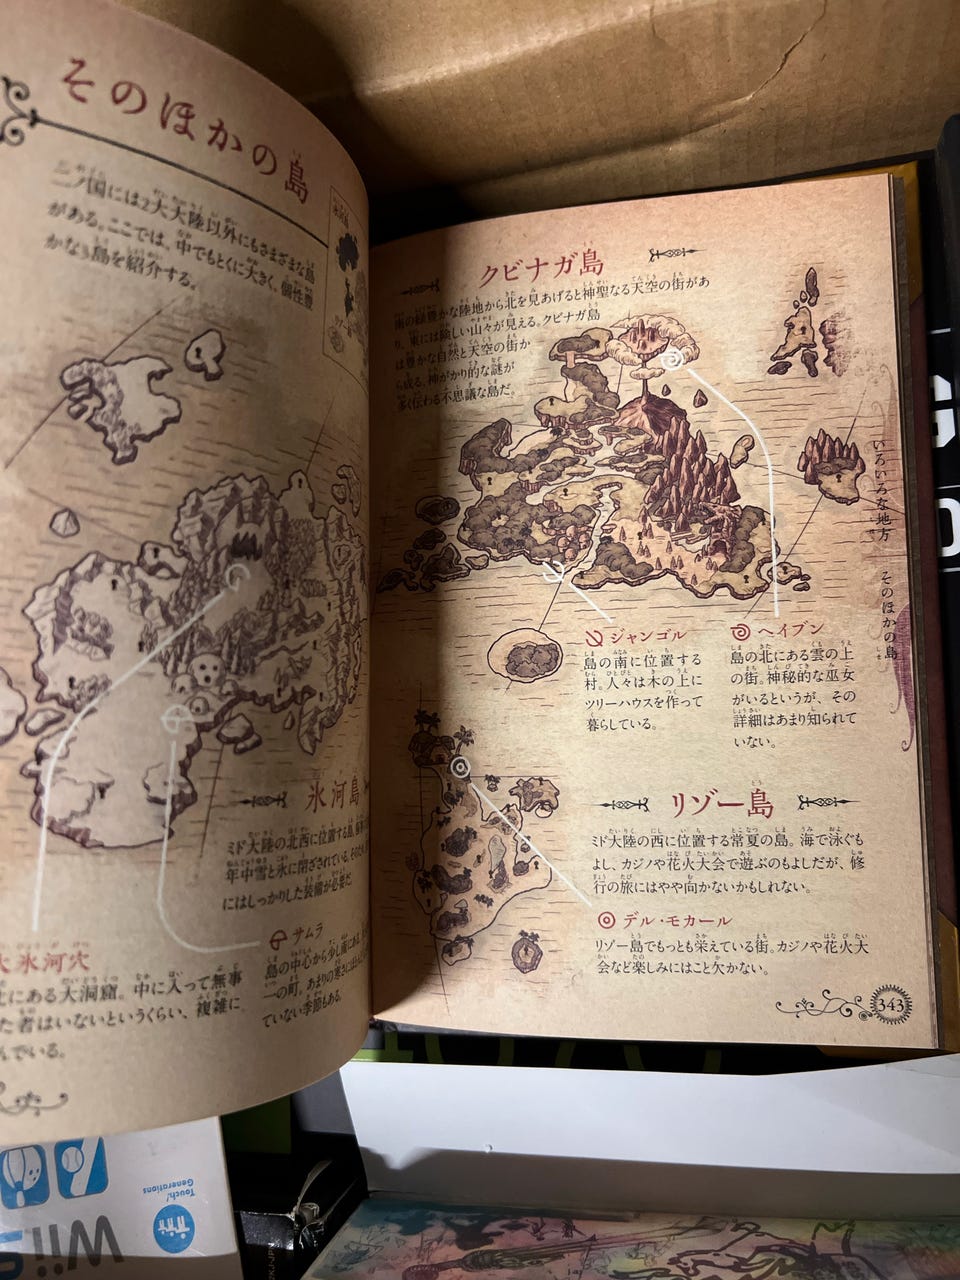 そのほかの島
二ノ国には2大大陸以外にもさまざまな島
がある。ここでは、中でもとくに大きく、個性豊
かな3島を紹介する。
氷河島
ミド大陸の北西に位置する島。
年中雪と氷に閉ざされている。そのため
にはしっかりした装備が必要だ。
大氷河穴
にある大洞窟。中に入って無事
た者はいないというくらい、複雑に
んでいる。
サムラ
島の中心から少し南にある、
一の町。あまりの寒さにほとんど
ていない季節もある。
クビナガ島
南の緑豊かな陸地から北を見あげると神聖なる天空の街があ
り、東には険しい山々が見える。クビナガ島
は豊かな自然と天空の街か
ら成る、神がかり的な謎が
多く伝わる不思議な島だ。
ジャンゴル
島の南に位置する
村。人々は木の上に
ツリーハウスを作って
暮らしている。
ヘイブン
島の北にある雲の上
の街。神秘的な巫女
がいるというが、その
詳細はあまり知られて
いない。
リゾー島
ミド大陸の西に位置する常夏の島。海で泳ぐも
よし、カジノや花火大会で遊ぶのもよしだが、修
行の旅にはやや向かないかもしれない。
デル・モカール
リゾー島でもっとも栄えている街。カジノや花火大
会など楽しみにはこと欠かない。
いろいろな地方 そのほかの島
343
Touch!
Generations
Wii